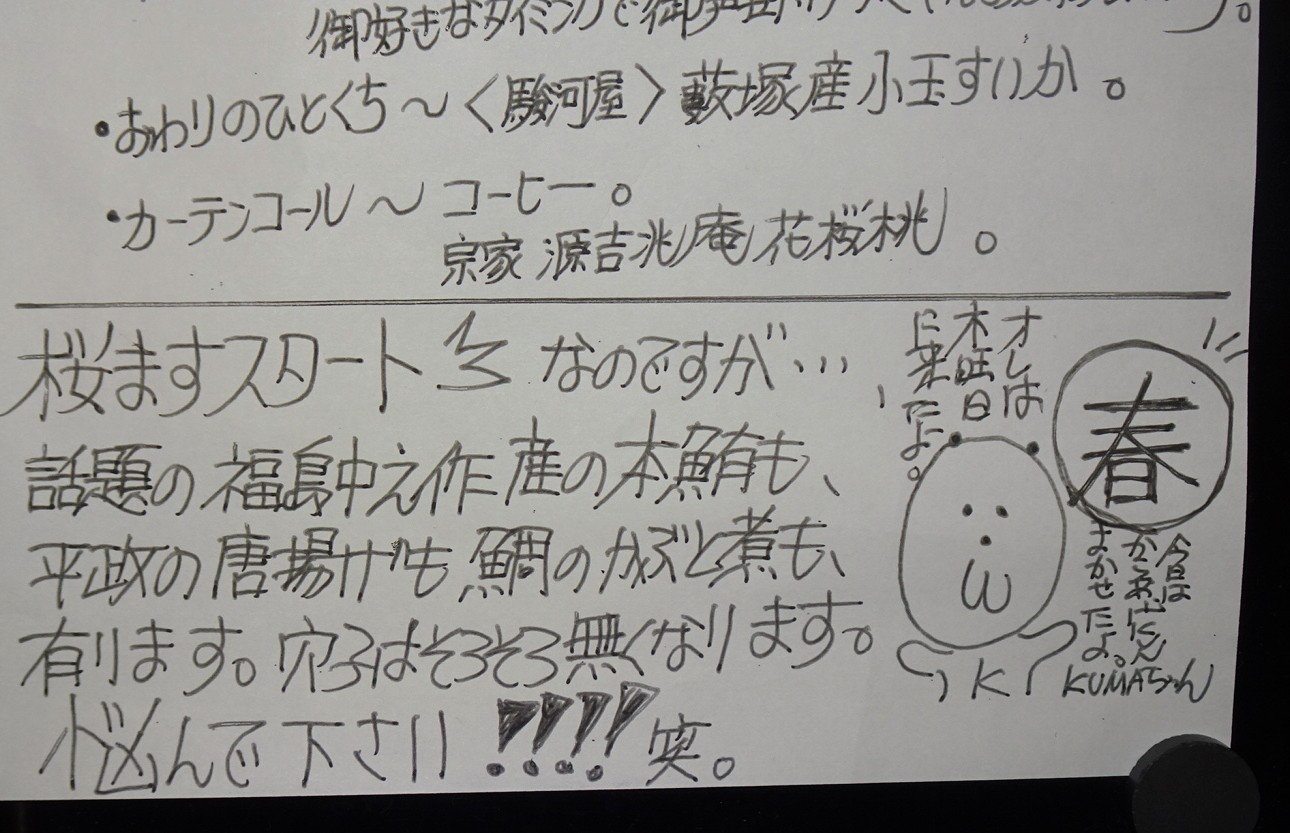 御好きなタイミングで御声掛け
・おわりのひとくち～〈駿河屋〉藪塚産小玉すいか。
・カーテンコール～コーヒー。
宗家 源吉兆庵 花桜桃。
桜ますスタート なのですが…
話題の福島中え作産の本鮪も、
平政の唐揚げも鯛のかぶと煮も、
有ります。穴子はそろそろ無くなります。
悩んで下さい!!!! 笑。
オレは
木曜日
に来たよ。
春
今日は
まかせたよ。
K
KUMAちゃん